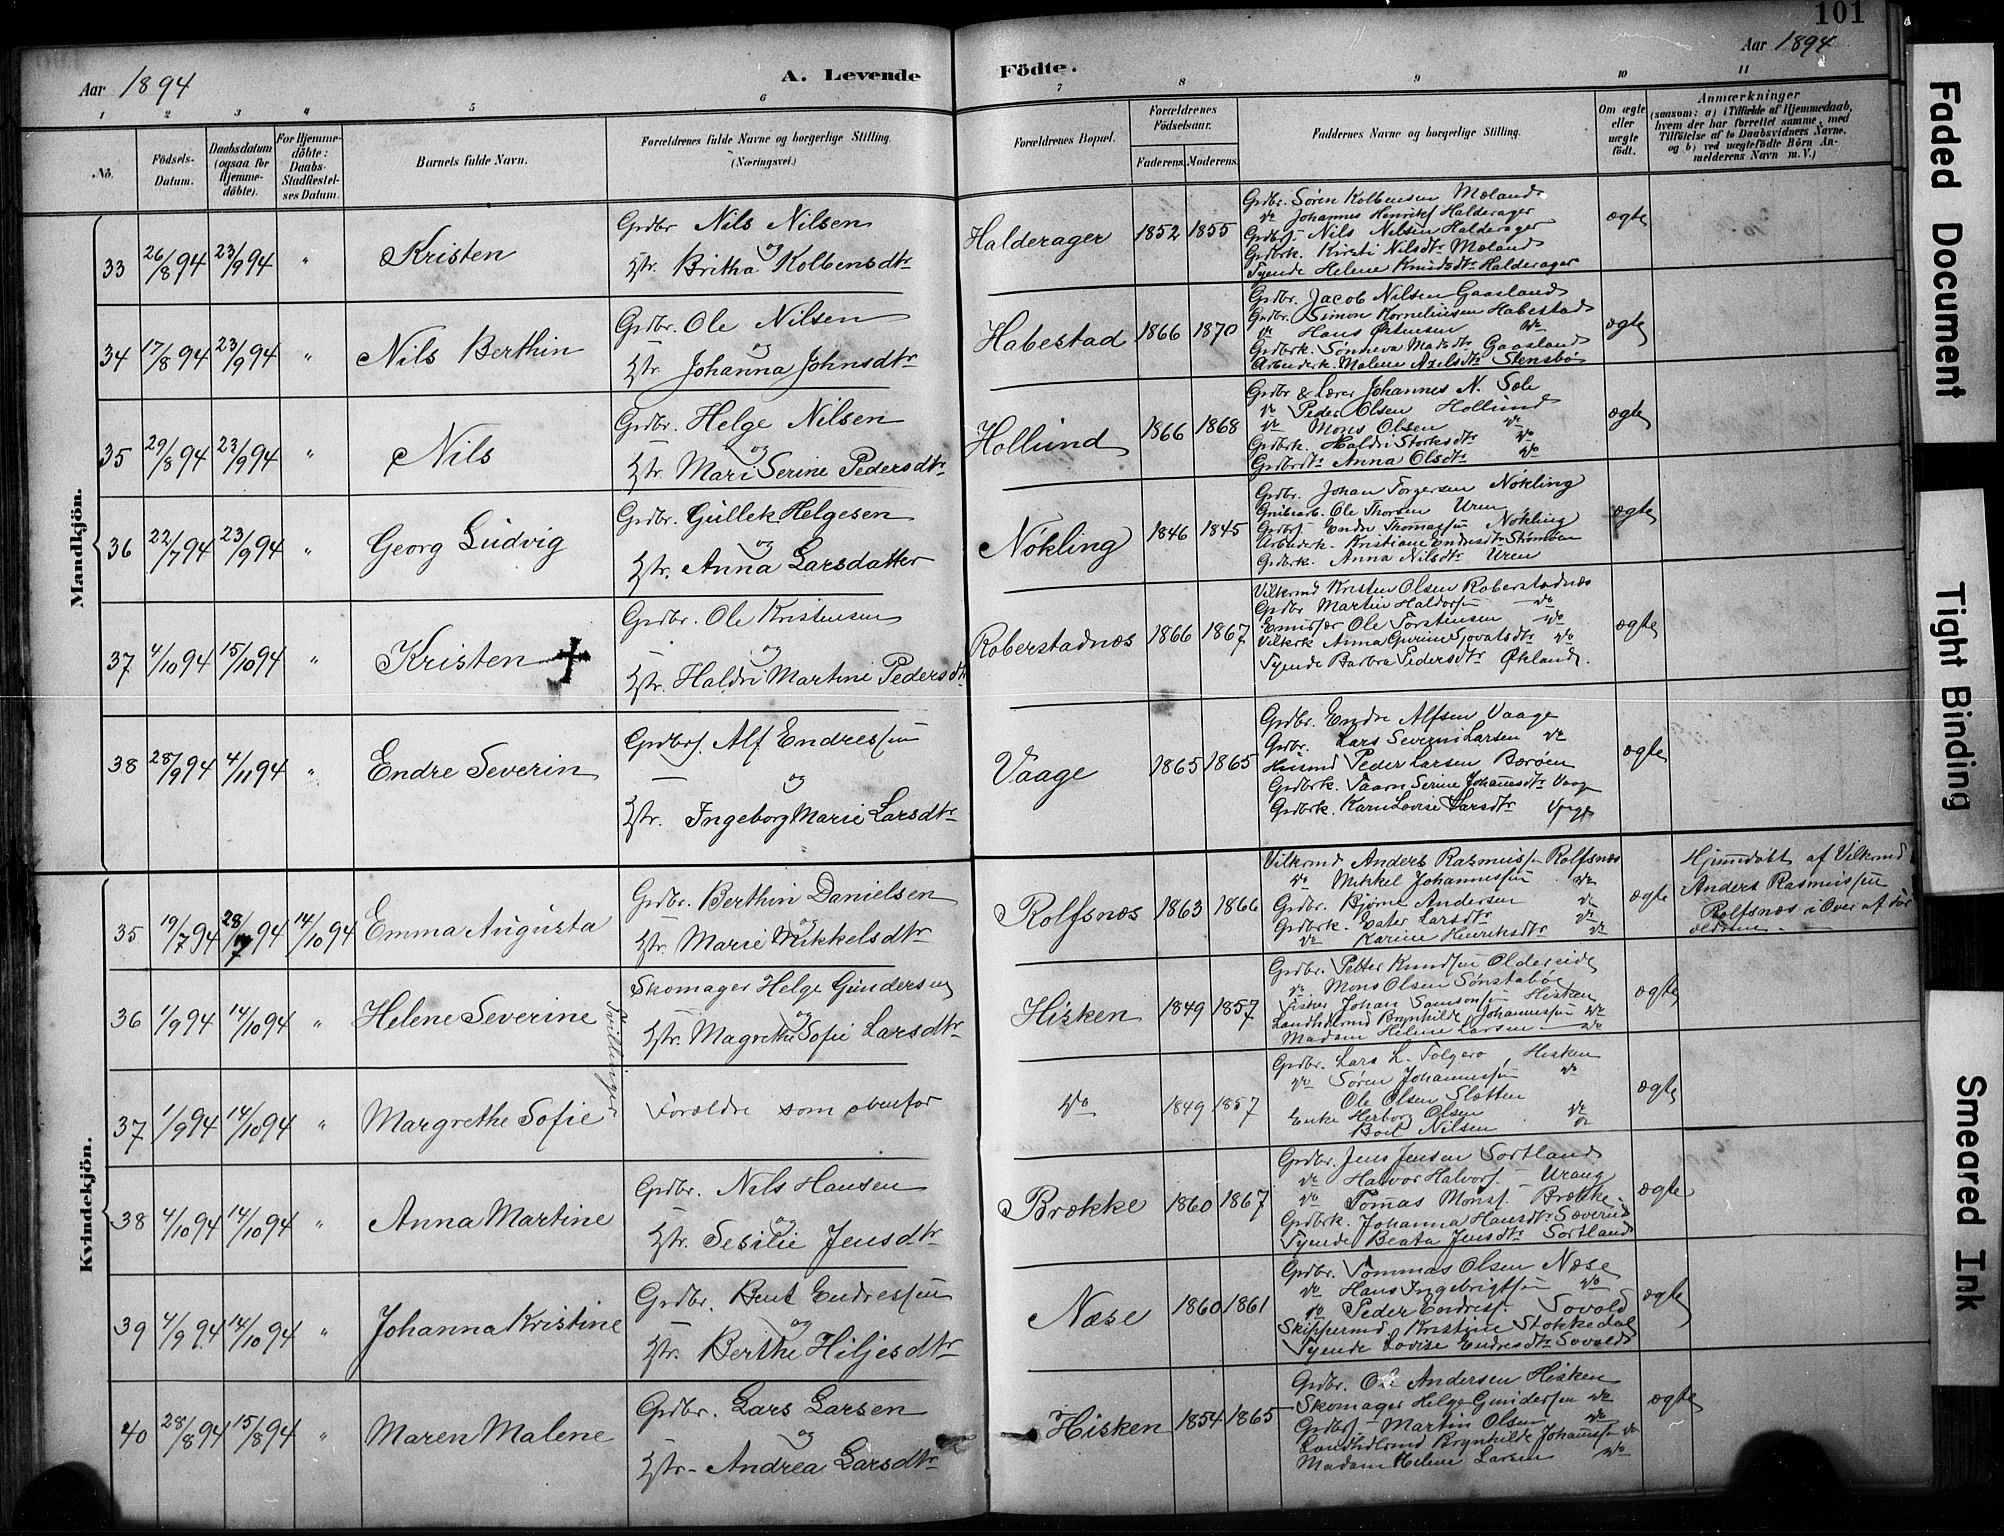 101
Aar 1894
A. Levende
Födte.
Aar 1894
1 2 3 4 5 6 7 8 9 10 11
No.
Födsels-Datum.
Daabsdatum (ogsaa for Hjemme-döbte).
For Hjemme-döbte: Daabs-Stadfæstel-ses Datum.
Barnets fulde Navn.
Forældrenes fulde Navne og borgerlige Stilling. (Næringsvei.)
Forældrenes Bopæl.
Forældrenes Födselsaar.
Faderens. Moderens.
Faddernes Navne og borgerlige Stilling.
Om ægte eller uægte födt.
Anmærkninger
(saasom: a) i Tilfælde af Hjemmedaab, hvem der har forrettet samme, med Tilföielse af to Daabsvidners Navne. og b) ved uægtefödte Börn An-melderens Navn m. V.)
Mandkjön.
33 26/8 94 23/9 94 " Kristen
Grdbr Nils Nilsen
og
Hstr. Britha Kolbensdtr
Halderager 1852 1855
Grdbr. Søren Kolbensen Mæland
do Johannes Henriks Halderager
Grdbrs. Nils Nilsen Halderager
Grdbrk. Kirsti Nilsdtr Mæland
Tjende Helene Knudsdtr Halderager
ægte
34 17/8 94 23/9 94 " Nils Berthin
Grdbr. Ole Nilsen
og
Hstr. Johanna Johnsdtr
Habestad 1866 1870
Grdbr. Jacob Nilsen Gaasland
Grdbr. Simon Korneliusen Habestad
do Hans Østensen do
Grdbrk. Sønneva Madsdtr Gaasland
Arbeiderk. Malene Axelsdtr Stensbø
ægte
35 29/8 94 23/9 94 " Nils
Grdbr. Helge Nilsen
og
Hstr. Mari Serine Pedersdtr
Hollund 1866 1868
Grdbr & Lærer Johannes N. Søle
do Peder Olsen Hollund
do Mons Olsen do
Grdbrk. Haldri Storksdtr do
Grdbrdtr Anna Olsdtr do
ægte
36 22/7 94 23/9 94 " Georg Ludvig
Grdbr. Gullek Helgesen
og
Hstr. Anna Larsdatter
Nøkling 1846 1845
Grdbr. Johan Torgersen Nøkling
Grubearb. Ole Thorsen Uren
Grdbrs. Endre Thomassen Nøkling
Arbeiderk. Kristiane Endresdtr
Grdbrk. Anna Nilsdtr Uren
ægte
37 4/10 94 15/10 94 " Kristen
Grdbr. Ole Kristensen
og
Hstr. Haldri Martine Pedersdtr
Roberstadnæs 1866 1867
Vilkrmd Kristen Olsen Roberstadnæs
Grdbr Martin Haldorsen do
Emissær Ole Torstensen do
Vilkrk Anna Gurine do
Tjende Barbra Pedersdtr Økland.
ægte
38 28/9 94 4/11 94 " Endre Severin
Grdbrs. Alf Endressen
og
Hstr. Ingeborg Marie Larsdtr
Vaage 1865 1865
Grdbr. Endre Alfsen Vaage
Grdbr. Lars Severin Larsen do
Husmd Peder Larsen Børøen
Grdbrk. Taarn Serine Johannesdtr Vaage
Grdbrk. Karn Lovise Larsdtr Vaage
ægte
Kvindekjön.
35 19/7 94 28/7 94 14/10 94 Emma Augusta
Grdbr. Berthin Danielsen
og
Hstr. Marie Mikkelsdtr
Rolfsnæs 1863 1866
Vilkrmd Anders Rasmussen Rolfsnæs
do Mikkel Johannessen do
Grdbr. Bjørne Andersen do
Grdbrk. Eater Larsdtr do
do Karine Henriksdtr do
ægte
Hjemdøbt af Vilkrmd
Anders Rasmussen
Rolfsnæs i Over af for
ældrene.
36 1/9 94 14/10 94 " Helene Severine
Tvillinger
Skomager Helge Gundersen
og
Hstr. Magrethe Sofie Larsdtr
Hisken 1849 1857
Grdbr. Petter Knudsen Oldereide
do Mons Olsen Sønstabø
Fisker Johan Samsonsen Hisken
Landhdlermd Brynhilde Johannessen do
Madam Helene Larsen do
ægte
37 1/9 94 14/10 94 " Margrethe Sofie
Forældre som ovenfor
do 1849 1857
Grdbr. Lars L. Folgerø, Hisken
do Søren Johannessen do
Ole Olsen Sletten
Enke Herborg Olsen do
Boel Nilsen do
ægte
38 4/10 94 14/10 94 " Anna Martine
Grdbr. Nils Hansen
og
Hstr. Sesilie Jensdtr
Brække 1860 1867
Grdbr. Jens Jensen Sortland
do Halvor Halvors. Urang
do Tomas Mons. Brække
Grdbrk. Johanna Hansdtr Sæverud
Tjende Beata Jensdtr Sortland
ægte
39 4/9 94 14/10 94 " Johanna Kristine
Grdbr. Bent Endressen
og
Hstr. Berthe Hiljesdtr
Næse 1860 1861
Grdbr. Tommas Olsen Næse
do Hans Ingebrigtsen do
do Peder Endres. Sovold
Skippermd Kristine Stokkedal
Tjende Lovise Endresdtr Sovold
ægte
40 28/8 94 15/8 94 " Maren Malene
Grdbr. Lars Larsen
og
Hstr. Andrea Larsdtr
Hisken 1854 1865
Grdbr. Ole Andersen Hisken
Skomager Helge Gundersen do
Grdbrs. Martin Olsen do
Landhdlrmd Brynhilde Johannessen do
Madam Helene Larsen do
ægte
Faded Document
Tight Binding
Smeared Ink